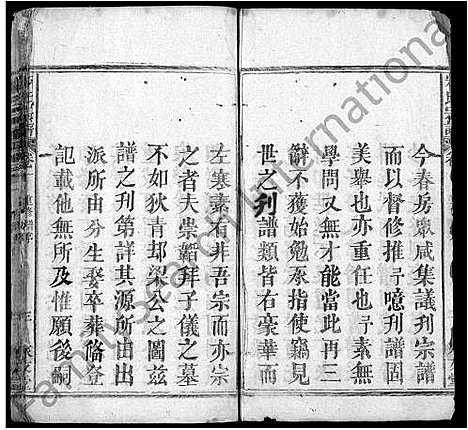 今春房眾咸集議刊宗譜
而以督修推予噫刊譜固
美舉也亦重任也予素無
學問又無才能當此再三
辭不獲始勉承指使竊見
世之刋譜類皆右豪華而
左寒素看非吾宗而亦宗
之者夫崇韜拜子儀之墓
不如狄青却梁公之圖茲
譜之刊第詳其源所由出
派所由分生娶卒葬俻登
記載他無所及惟願後嗣
FamilySearch International